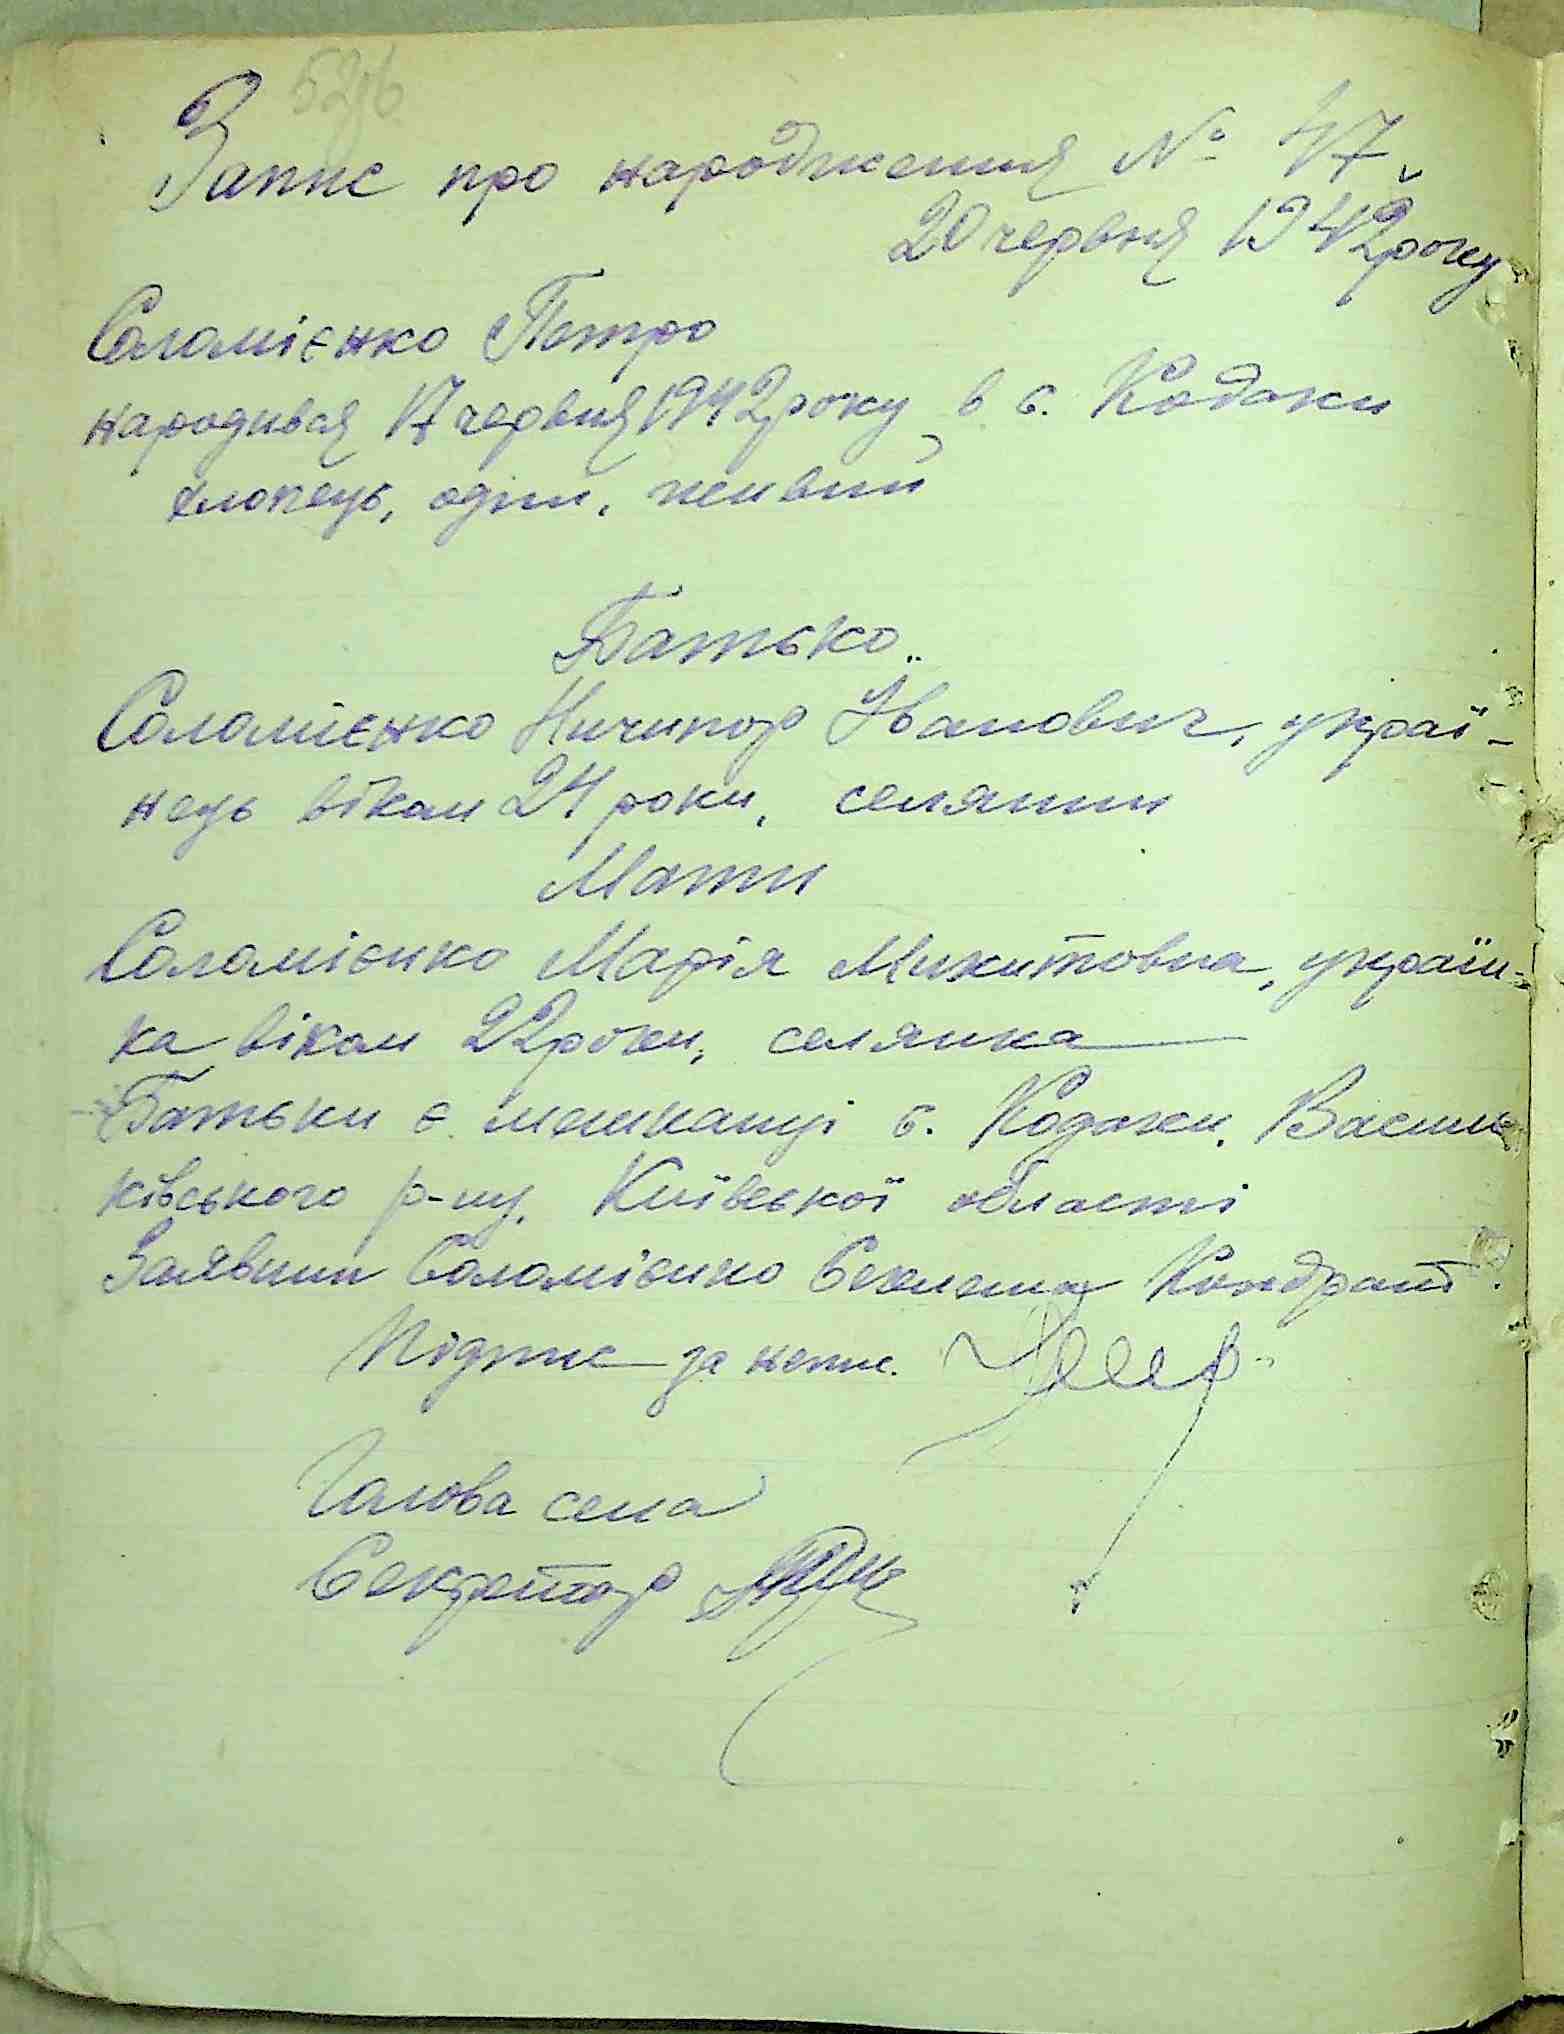 Запис про народження № 47
20 червня 1942 року
Саламієнко Петро
народився 17 червня 1942 року в с. Кодаки
хлопець, один, живий
Батько
Саламієнко Ничипор Іванович, украї-
нець віком 24 роки, селянин
Мати
Саламієнко Марія Микитовна, україн-
ка віком 22 роки, селянка
Батьки є мешканці с. Кодаки, Василь
ківського р-ну, Київської області
Заявник Саламієнко Секлета Кондрат.
Підпис за непис.
Голова села
Секретар